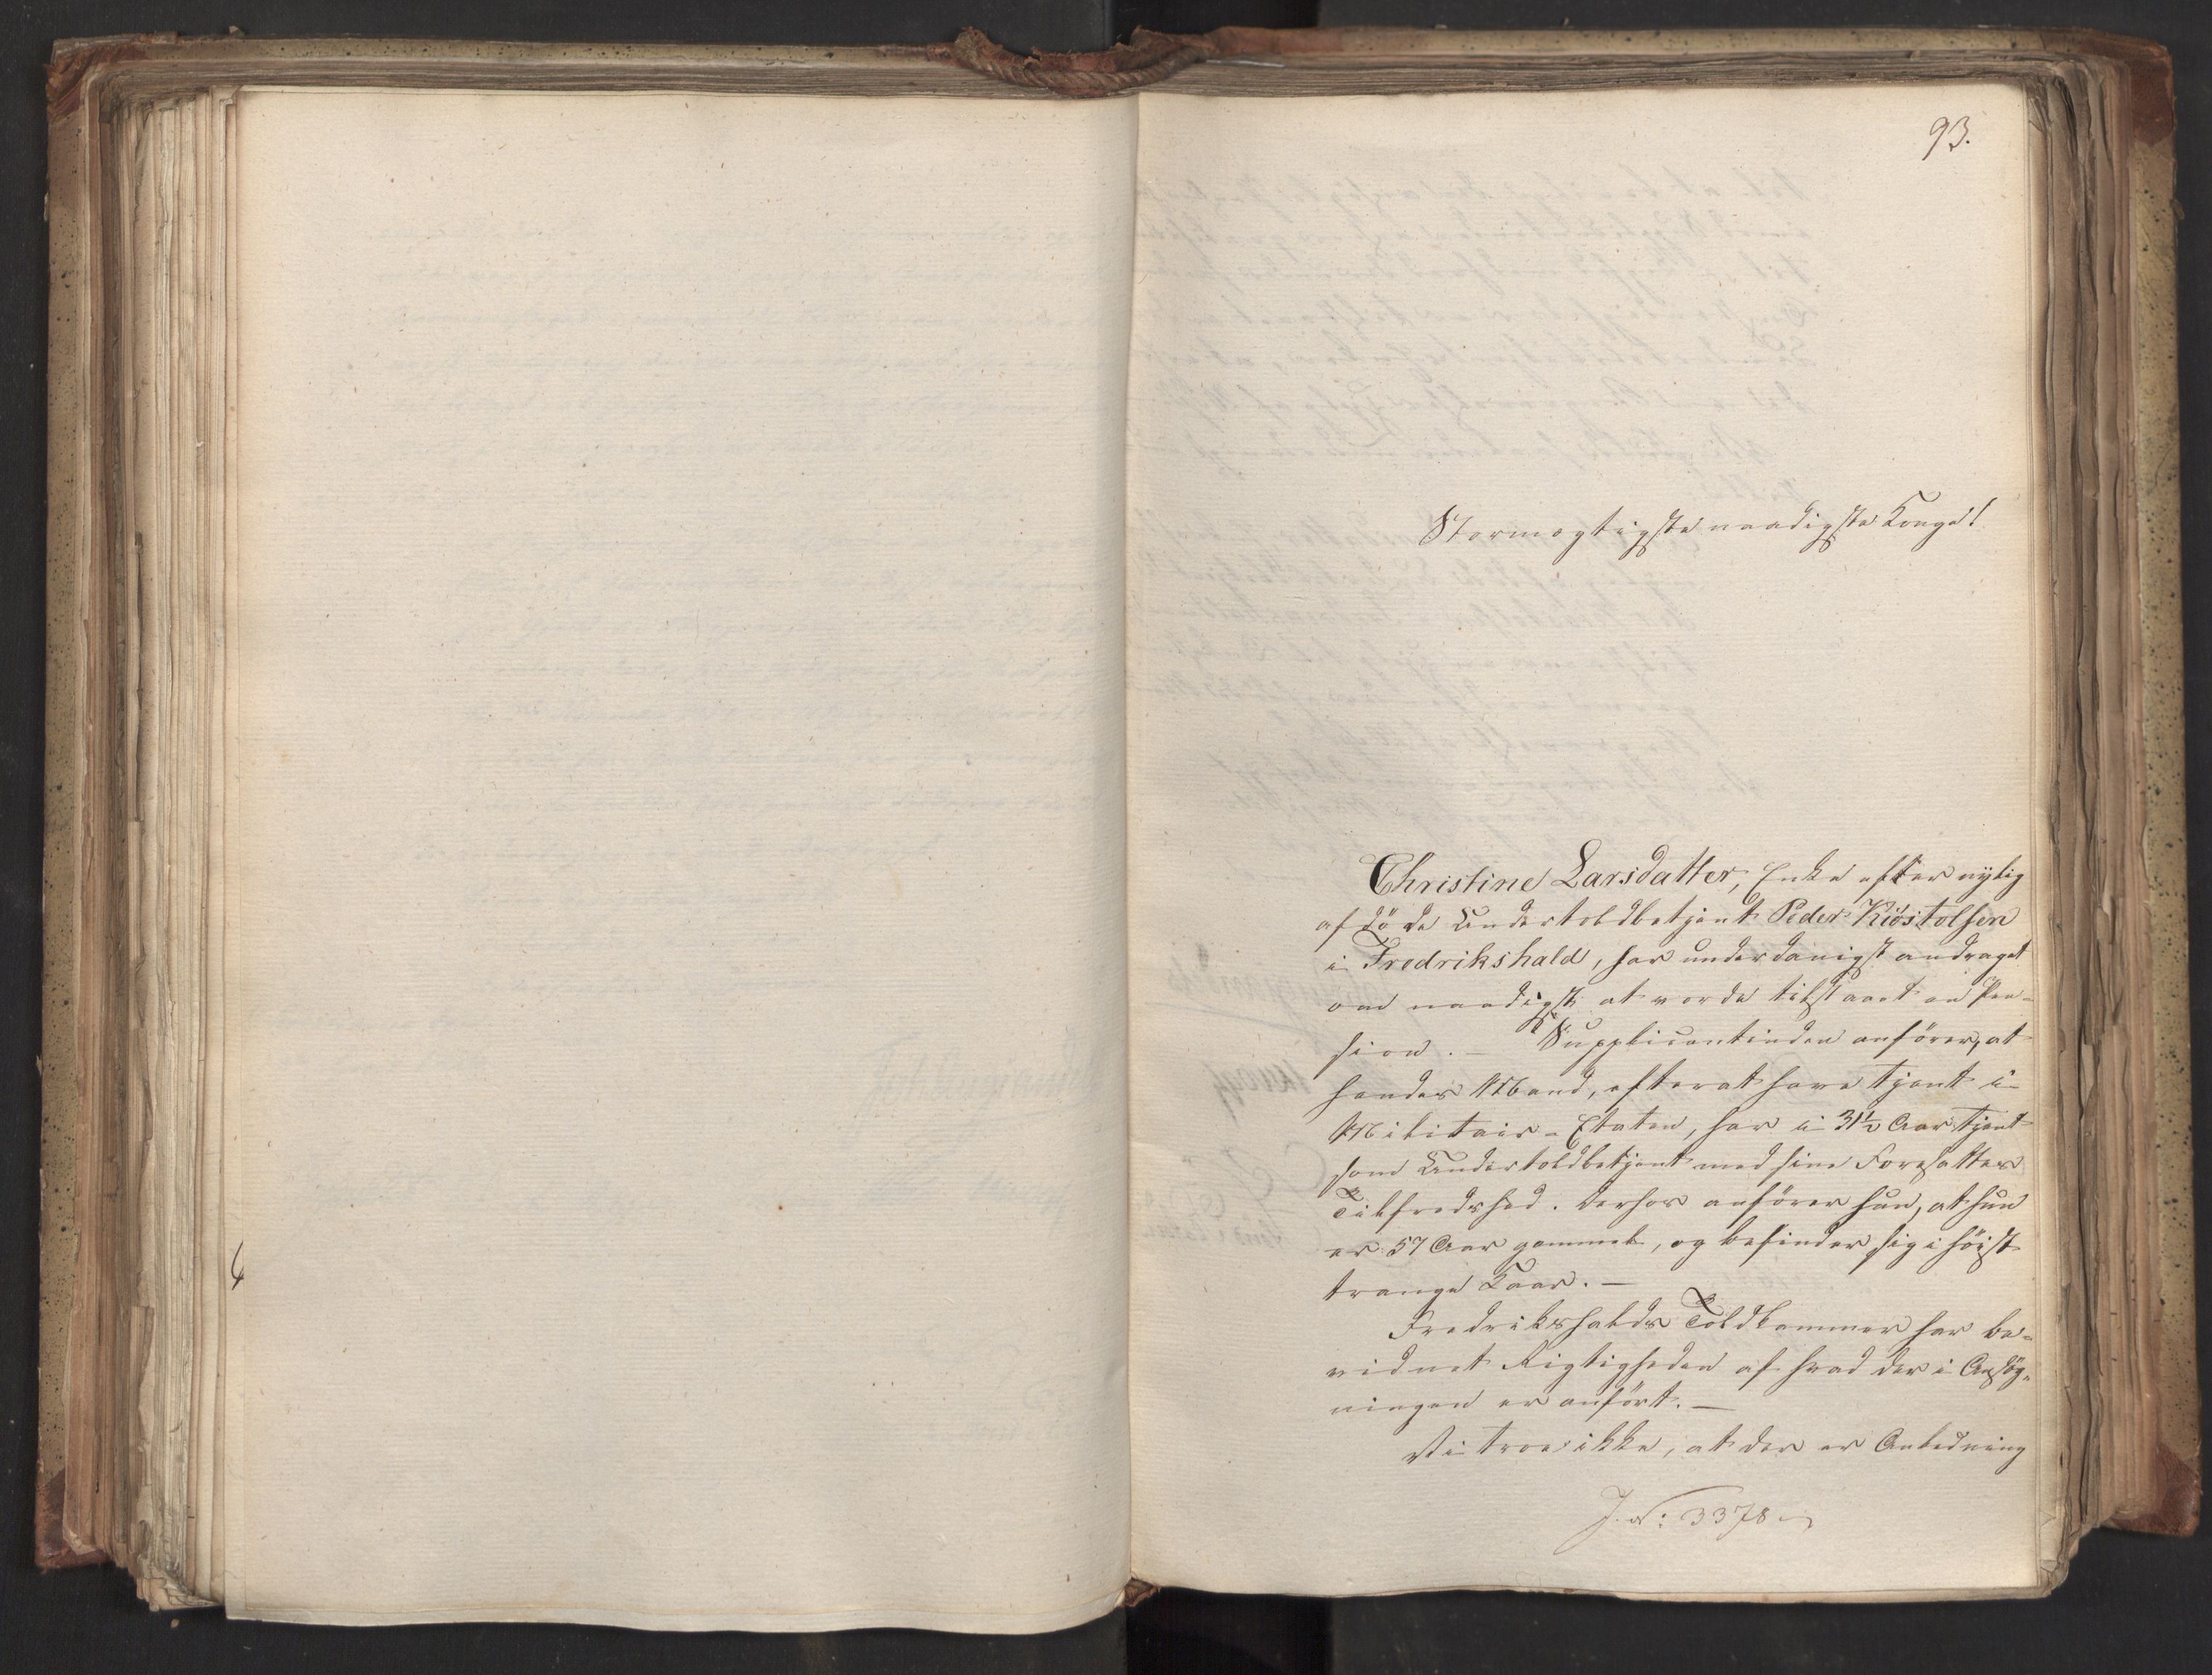 93.
Stormægtigste naadigste Konge!
Christine Larsdatter, Enke efter nylig
afdöde Undertoldbetjent Peder Kiöstolsen
i Fredrikshald, har underdanigst andraget
om naadigst at vorde tilstaaet en Pen-
sion. — Supplicantinden anförer, at
hendes Mand, efter at have tjent i
Militair-Etaten, har i 31½ Aar tjent
som Undertoldbetjent med sine Foresattes
Tilfredshed. Derhos anförer hun, at hun
er 57 Aar gammel, og befinder sig i höist
trange Kaar. —
Fredrikshalds Toldkammer har be-
vidnet Rigtigheden af hvad der i Ansög-
ningen er anfört. —
Vi troe ikke, at der er Anledning
J. N: 3378